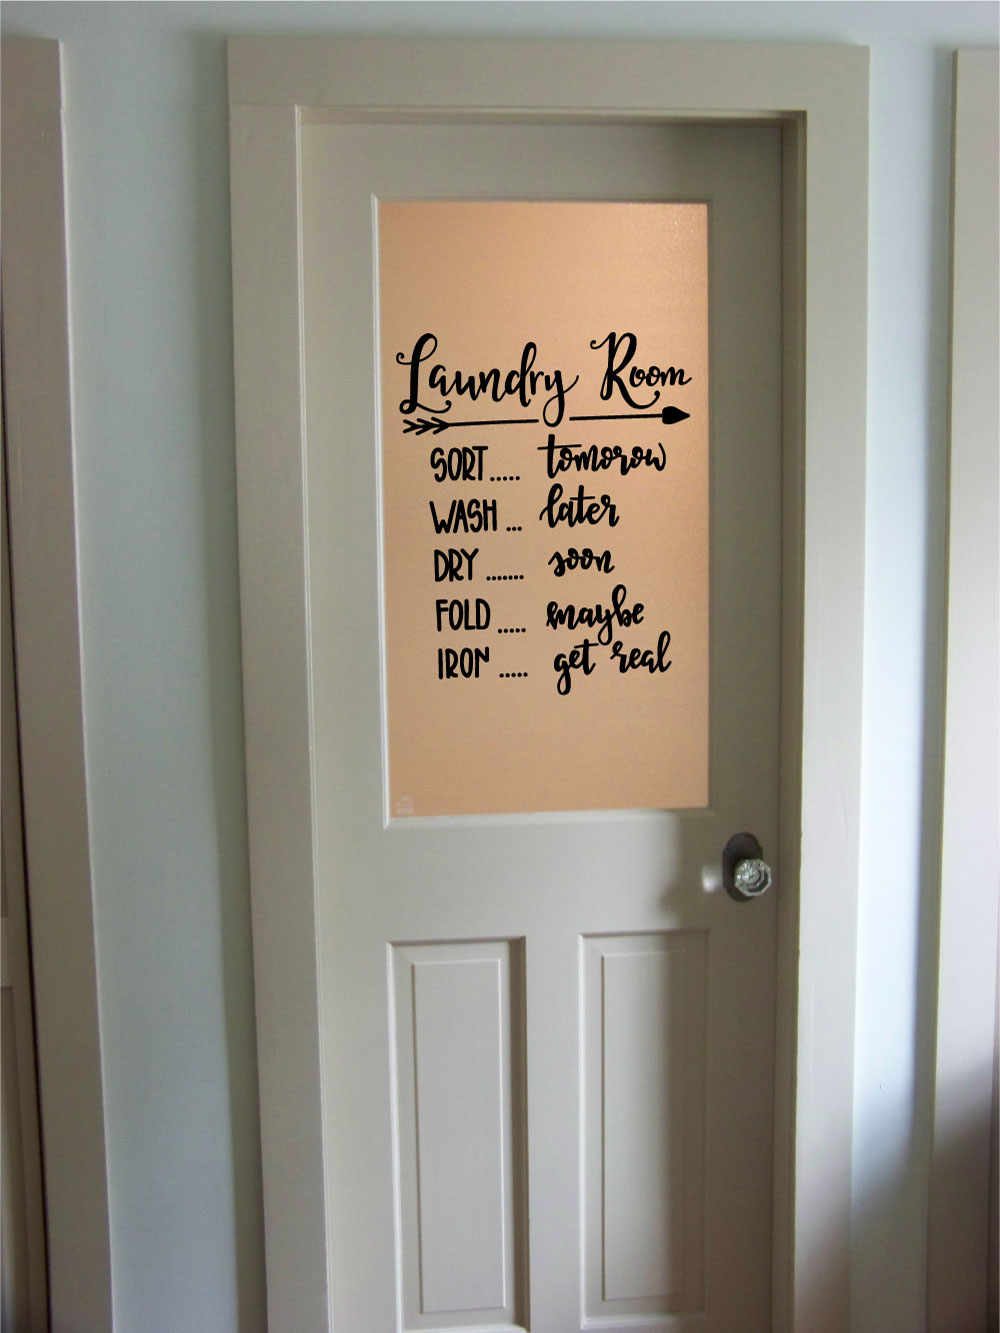 Laundry Room
SORT..... tomorow
WASH ... later
DRY ....... soon
FOLD ..... maybe
IRON ..... get real